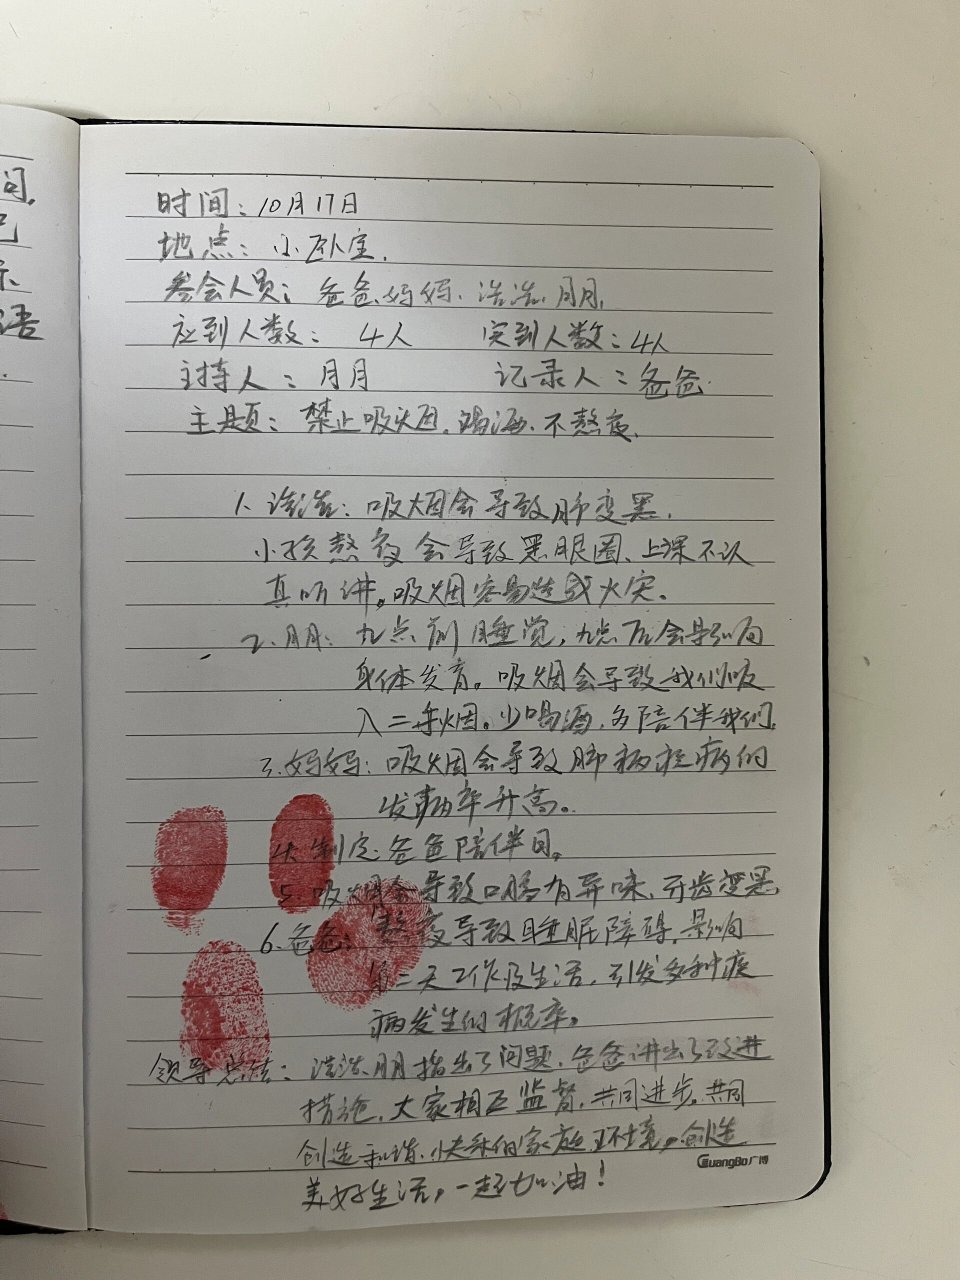 问,
己
示
语
时间：10月17日
地点：小卧室.
参会人员：爸爸.妈妈、浩浩、月月.
应到人数： 4人 实到人数：4人
主持人：月月 记录人：爸爸.
主题：禁止吸烟.喝酒.不熬夜.
1、浩浩：吸烟会导致肺变黑.
小孩熬夜会导致黑眼圈、上课不认
真听讲。吸烟容易造成火灾。
2、月月：九点前睡觉，九点后会影响
身体发育。吸烟会导致我们吸
入二手烟。少喝酒.多陪伴我们.
3、妈妈：吸烟会导致肺病疾病的
发病率升高。
4、制定爸爸陪伴日。
5、吸烟会导致口腔有异味、牙齿变黑
6、爸爸：熬夜导致睡眠障碍.影响
第二天工作及生活，引发多种疾
病发生的概率。
领导总结：浩浩.月月指出了问题.爸爸讲出了改进
措施.大家相互监督.共同进步.共同
创造和谐、快乐的家庭环境，创造
美好生活，一起加油！
GuangBo广博